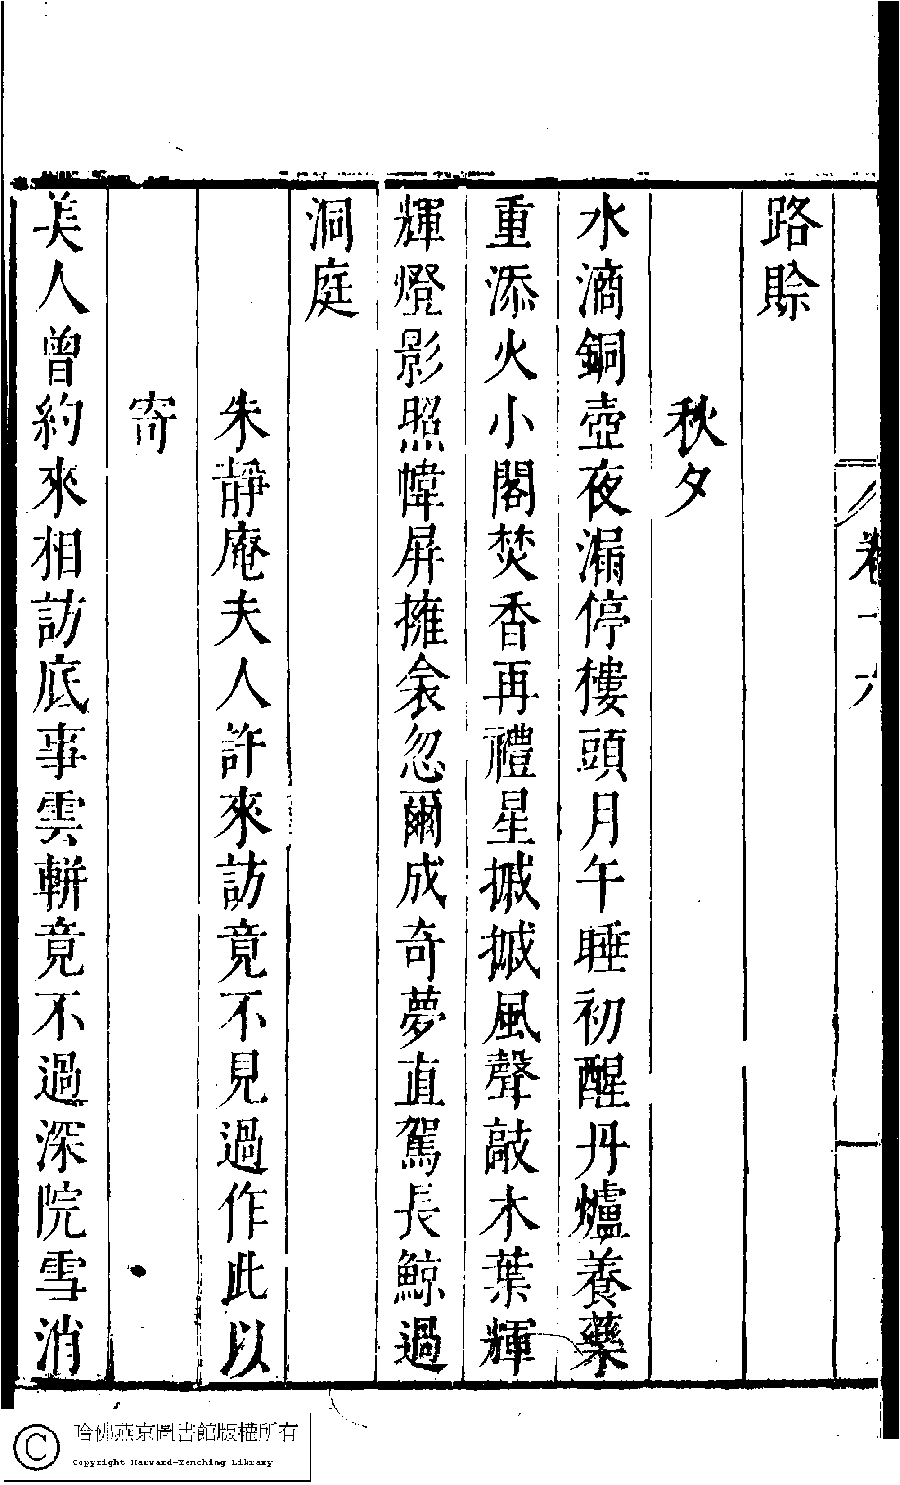 卷十六
路賒
秋夕
水滴銅壺夜漏停樓頭月午睡初醒丹爐養藥
重添火小閣焚香再禮星摵摵風聲敲木葉輝
輝燈影照幃屏擁衾忽爾成奇夢直駕長鯨過
洞庭
朱靜庵夫人許來訪竟不見過作此以
寄
美人曾約來相訪底事雲軿竟不過深院雪消
哈佛燕京圖書館版權所有
Copyright Harvard-Yenching Library